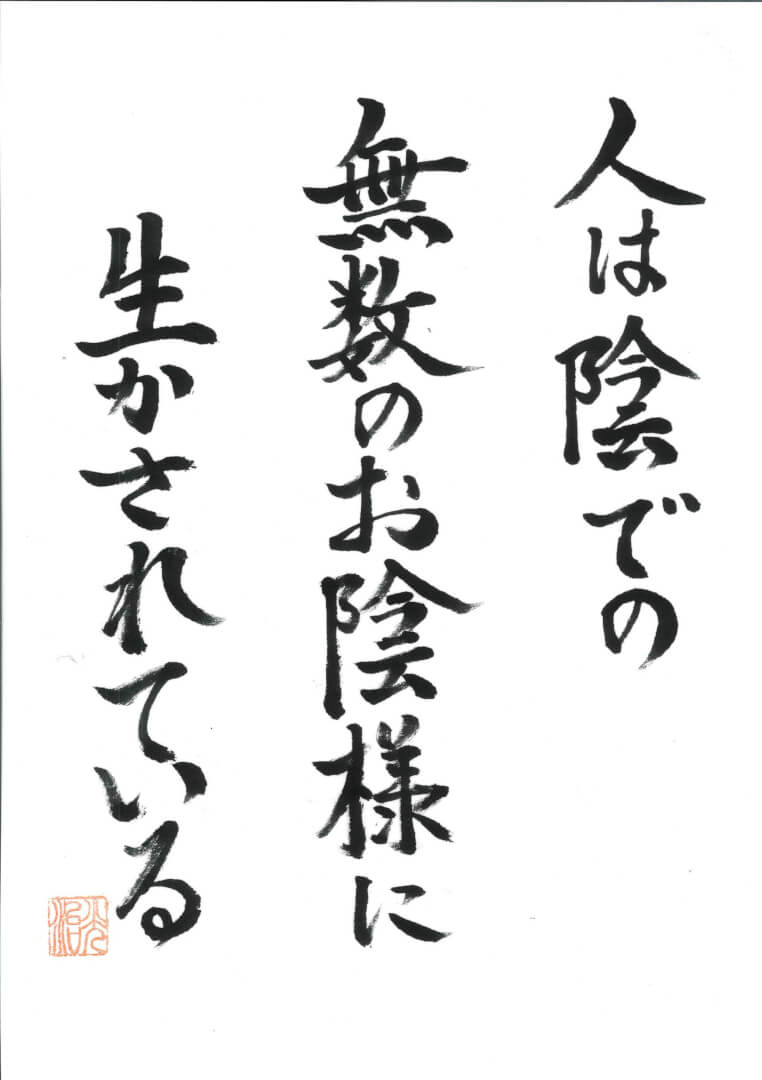 人は陰での
無数のお陰様に
生かされている